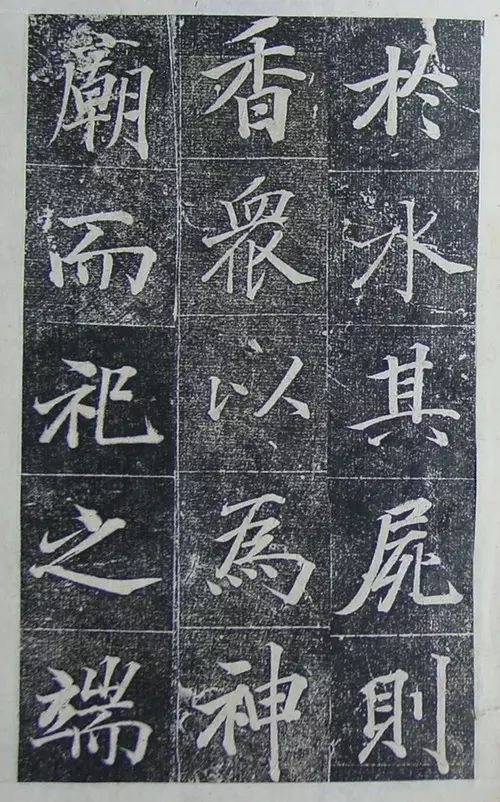 於水其屍則
香眾以為神
廟而祀之端